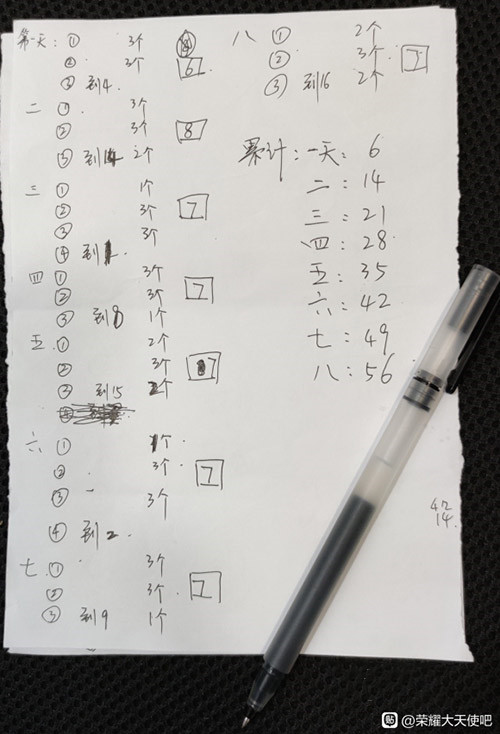 第一天：① 3个
② 3个 6
③ 到4
二 ① 3个
② 3个 8
③ 到14 2个
三 ① 1个
② 3个 7
③ 3个
④ 到
四 ① 3个
② 3个 7
③ 到8 1个
五 ① 2个
② 3个 7
③ 到15 2个
六 ① 1个
② 3个 7
③ 3个
④ 到2
七 ① 3个
② 3个 7
③ 到9 1个
八 ① 2个
② 3个 7
③ 到16 2个
累计：一天：6
二：14
三：21
四：28
五：35
六：42
七：49
八：56
42
14
贴 @荣耀大天使吧